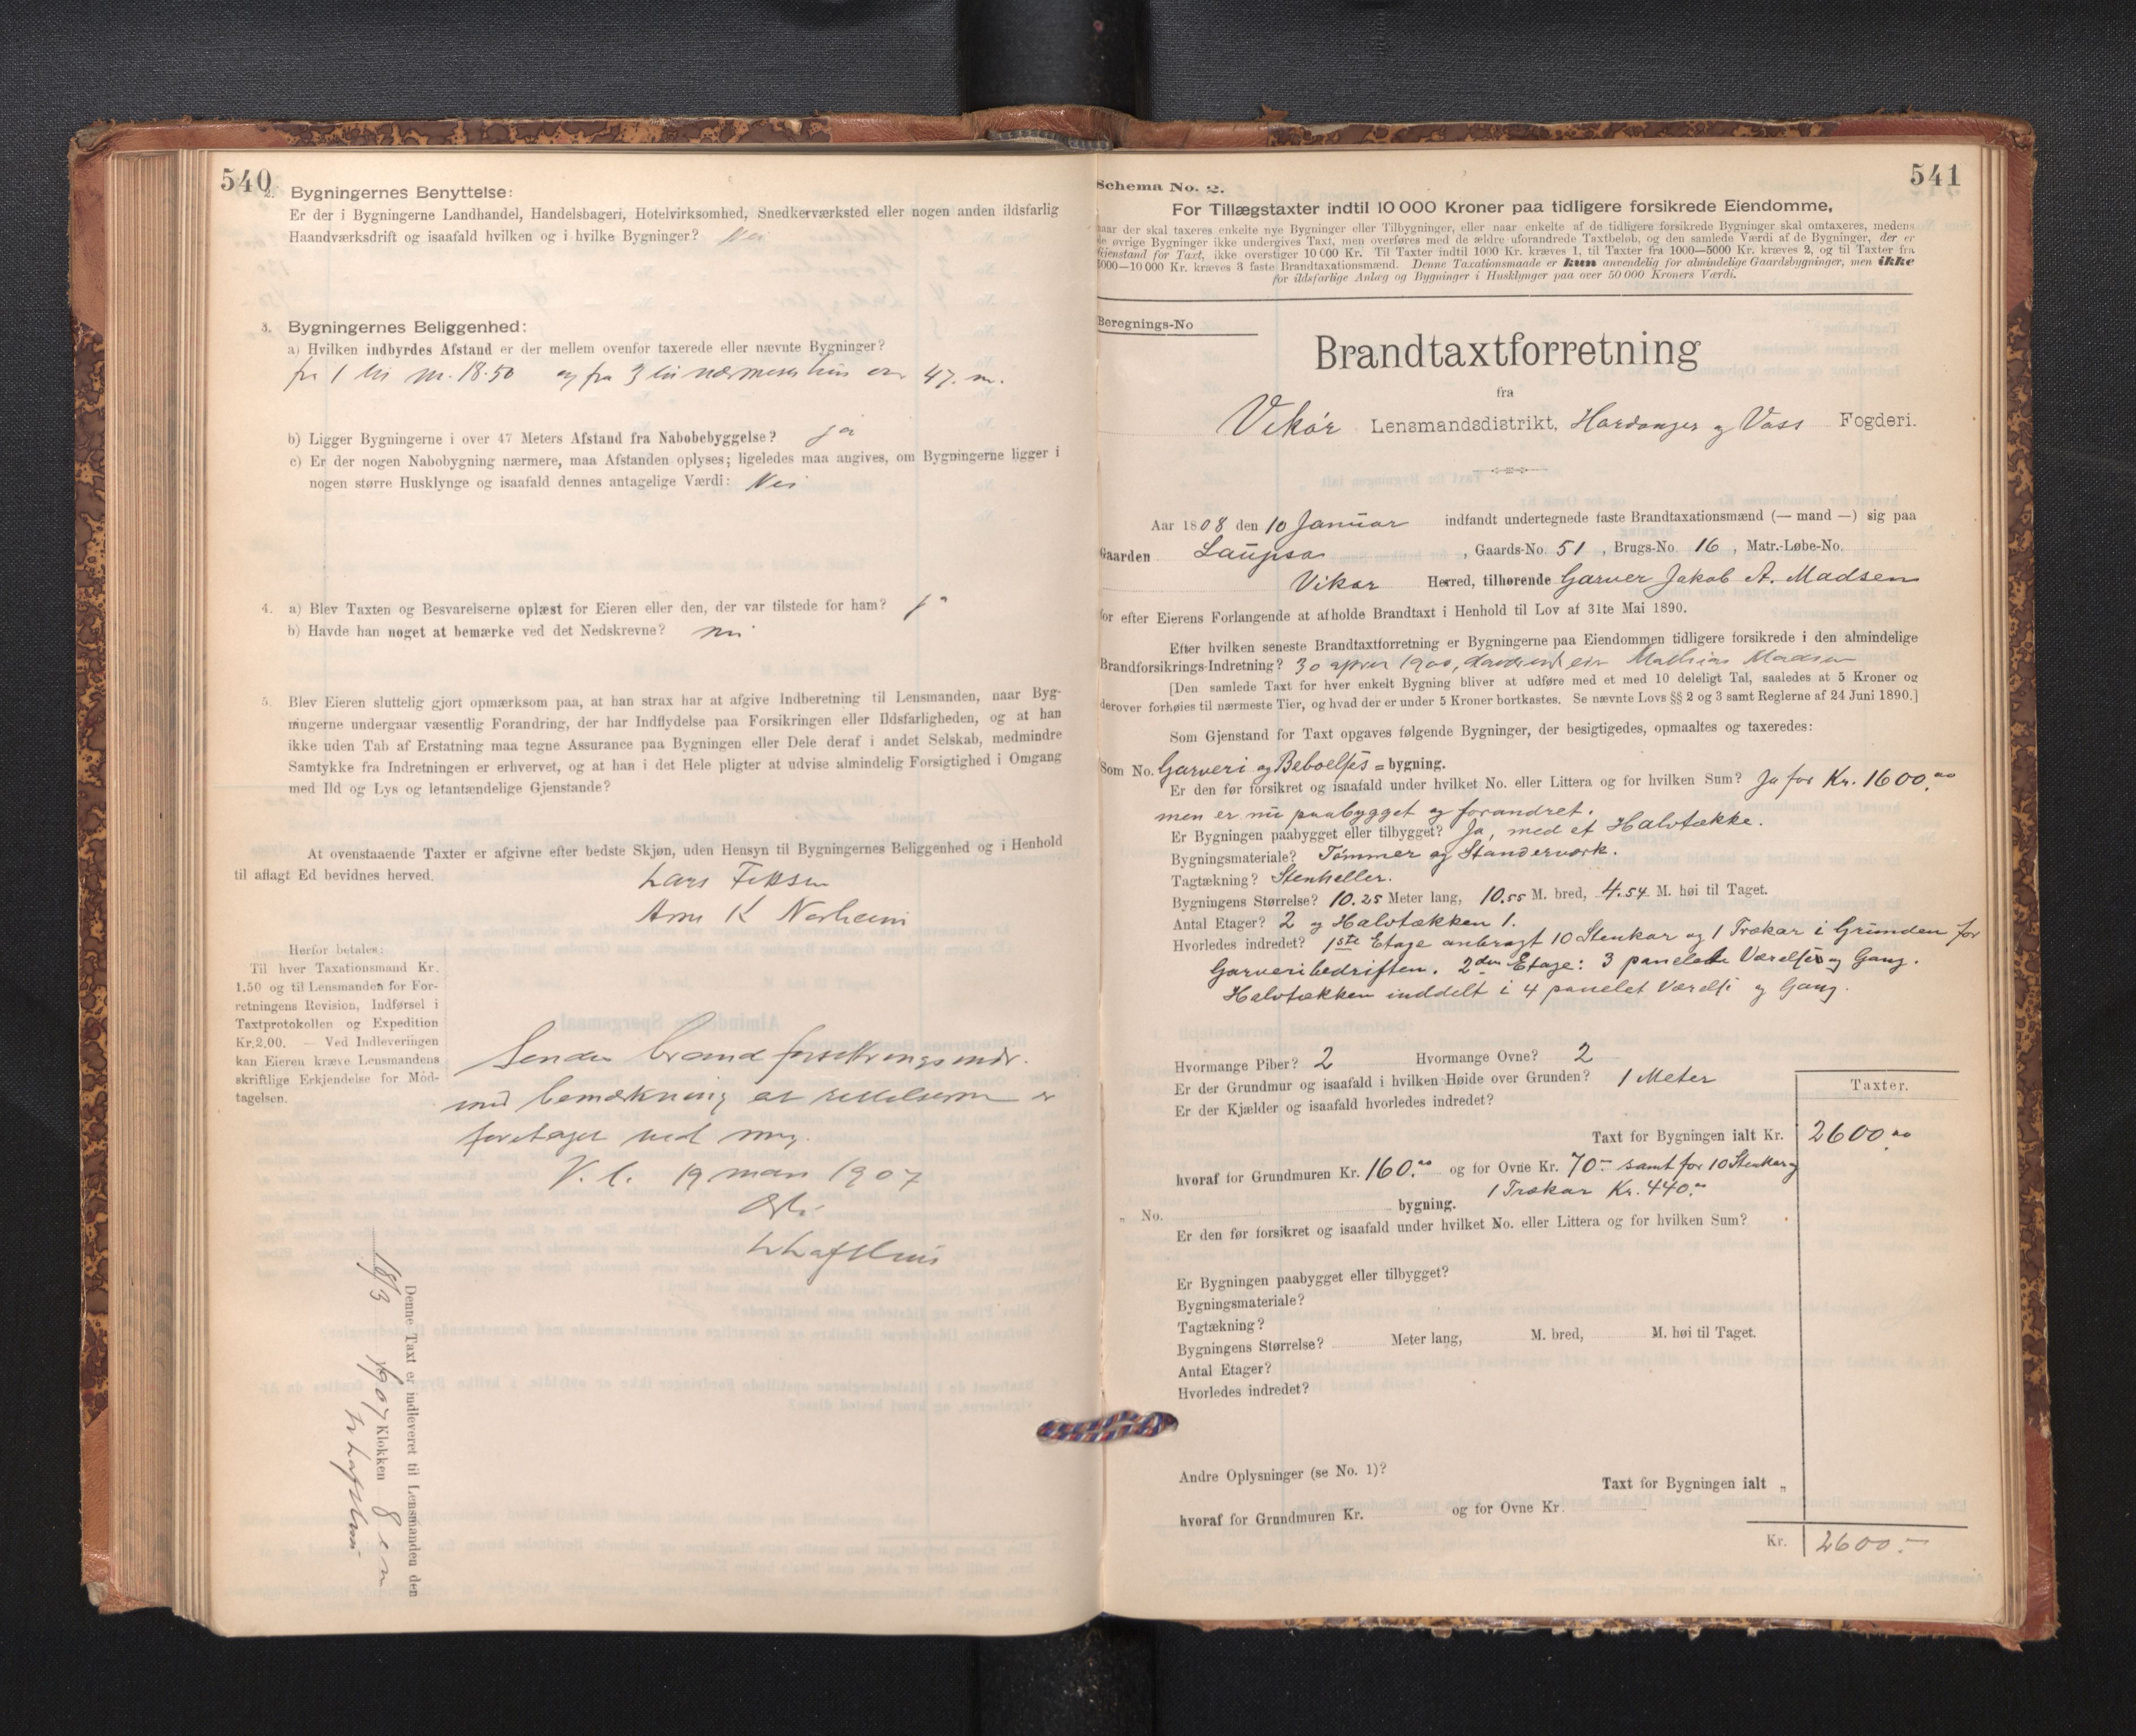 540
2. Bygningernes Benyttelse:
Er der i Bygningerne Landhandel, Handelsbageri, Hotelvirksomhed, Snedkerværksted eller nogen anden ildsfarlig
Haandværksdrift og isaafald hvilken og i hvilke Bygninger? Nei
3. Bygningernes Beliggenhed:
a) Hvilken indbyrdes Afstand er der mellem ovenfor taxerede eller nævnte Bygninger?
fra 1 til m. 18.50 og fra 3 til nærmeste hus over 47. m.
b) Ligger Bygningerne i over 47 Meters Afstand fra Nabobebyggelse? ja
c) Er der nogen Nabobygning nærmere, maa Afstanden oplyses; ligeledes maa angives, om Bygningerne ligger i
nogen større Husklynge og isaafald dennes antagelige Værdi: Nei
4. a) Blev Taxten og Besvarelserne oplæst for Eieren eller den, der var tilstede for ham? ja
b) Havde han noget at bemærke ved det Nedskrevne? nei
5. Blev Eieren sluttelig gjort opmærksom paa, at han strax har at afgive Indberetning til Lensmanden, naar Byg-
ningerne undergaar væsentlig Forandring, der har Indflydelse paa Forsikringen eller Ildsfarligheden, og at han
ikke uden Tab af Erstatning maa tegne Assurance paa Bygningen eller Dele deraf i andet Selskab, medmindre
Samtykke fra Indretningen er erhvervet, og at han i det Hele pligter at udvise almindelig Forsigtighed i Omgang
med Ild og Lys og letantændelige Gjenstande?
At ovenstaaende Taxter er afgivne efter bedste Skjøn, uden Hensyn til Bygningernes Beliggenhed og i Henhold
til aflagt Ed bevidnes herved.
Lars Fiksen
Arne K Norheim
Herfor betales:
Til hver Taxationsmand Kr.
1.50 og til Lensmanden for For-
retningens Revision, Indførsel i
Taxtprotokollen og Expedition
Kr.2.00. — Ved Indleveringen
kan Eieren kræve Lensmandens
skriftlige Erkjendelse for Mod-
tagelsen.
Sendes brandforsikringsindr.
med bemærkning at rettelserne er
foretaget ved mig.
V. l. 19 mars 1907
Denne Taxt er indleveret til Lensmanden den
18/3 1907 Klokken 8 em
541
Schema No. 2.
For Tillægstaxter indtil 10 000 Kroner paa tidligere forsikrede Eiendomme,
naar der skal taxeres enkelte nye Bygninger eller Tilbygninger, eller naar enkelte af de tidligere forsikrede Bygninger skal omtaxeres, medens
de øvrige Bygninger ikke undergives Taxt, men overføres med de ældre uforandrede Taxtbeløb, og den samlede Værdi af de Bygninger, der er
Gjenstand for Taxt, ikke overstiger 10 000 Kr. Til Taxter indtil 1000 Kr. kræves 1, til Taxter fra 1000—5000 Kr. kræves 2, og til Taxter fra
5000—10 000 Kr. kræves 3 faste Brandtaxationsmænd. Denne Taxationsmaade er kun anvendelig for almindelige Gaardsbygninger, men ikke
for ildsfarlige Anlæg og Bygninger i Husklynger paa over 50 000 Kroners Værdi.
Beregnings-No
Brandtaxtforretning
fra
Vikør Lensmandsdistrikt, Hardanger og Voss Fogderi.
Aar 1808 den 10 Januar indfandt undertegnede faste Brandtaxationsmænd (— mand —) sig paa
Gaarden Laupsa, Gaards-No. 51, Brugs-No. 16, Matr.-Løbe-No.
Vikør Herred, tilhørende Garver Jakob A. Madsen
for efter Eierens Forlangende at afholde Brandtaxt i Henhold til Lov af 31te Mai 1890.
Efter hvilken seneste Brandtaxtforretning er Bygningerne paa Eiendommen tidligere forsikrede i den almindelige
Brandforsikrings-Indretning? 30 april 1900, daværende eier Mathias Madsen
[Den samlede Taxt for hver enkelt Bygning bliver at udføre med et med 10 deleligt Tal, saaledes at 5 Kroner og
derover forhøies til nærmeste Tier, og hvad der er under 5 Kroner bortkastes. Se nævnte Lovs §§ 2 og 3 samt Reglerne af 24 Juni 1890.]
Som Gjenstand for Taxt opgaves følgende Bygninger, der besigtigedes, opmaaltes og taxeredes:
Som No. Garveri og Beboelses = bygning.
Er den før forsikret og isaafald under hvilket No. eller Littera og for hvilken Sum? Ja for Kr. 1600.00
men er nu paabygget og forandret.
Er Bygningen paabygget eller tilbygget? Ja, med et Halvtække.
Bygningsmateriale? Tømmer og Standerværk.
Tagtækning? Stenheller.
Bygningens Størrelse? 10.25 Meter lang, 10.55 M. bred, 4.54 M. høi til Taget.
Antal Etager? 2 og Halvtækken 1.
Hvorledes indredet? 1ste Etage anbragt 10 Stenkar og 1 Trækar i Grunden for
Garveribedriften. 2den Etage: 3 panelede Værelser og Gang.
Halvtækken inddelt i 4 panelet Værelse og Gang.
Hvormange Piber? 2 Hvormange Ovne? 2
Er der Grundmur og isaafald i hvilken Høide over Grunden? 1 Meter
Er der Kjælder og isaafald hvorledes indredet?
Taxter.
Taxt for Bygningen ialt Kr. 2600.00
hvoraf for Grundmuren Kr. 160.00 og for Ovne Kr. 70.- samt for 10 Stenkar og
1 Trækar Kr. 440.-
„ No. bygning.
Er den før forsikret og isaafald under hvilket No. eller Littera og for hvilken Sum?
Er Bygningen paabygget eller tilbygget?
Bygningsmateriale?
Tagtækning?
Bygningens Størrelse? Meter lang, M. bred, M. høi til Taget.
Antal Etager?
Hvorledes indredet?
Andre Oplysninger (se No. 1)?
Taxt for Bygningen ialt „
hvoraf for Grundmuren Kr. og for Ovne Kr.
Kr. 2600.-